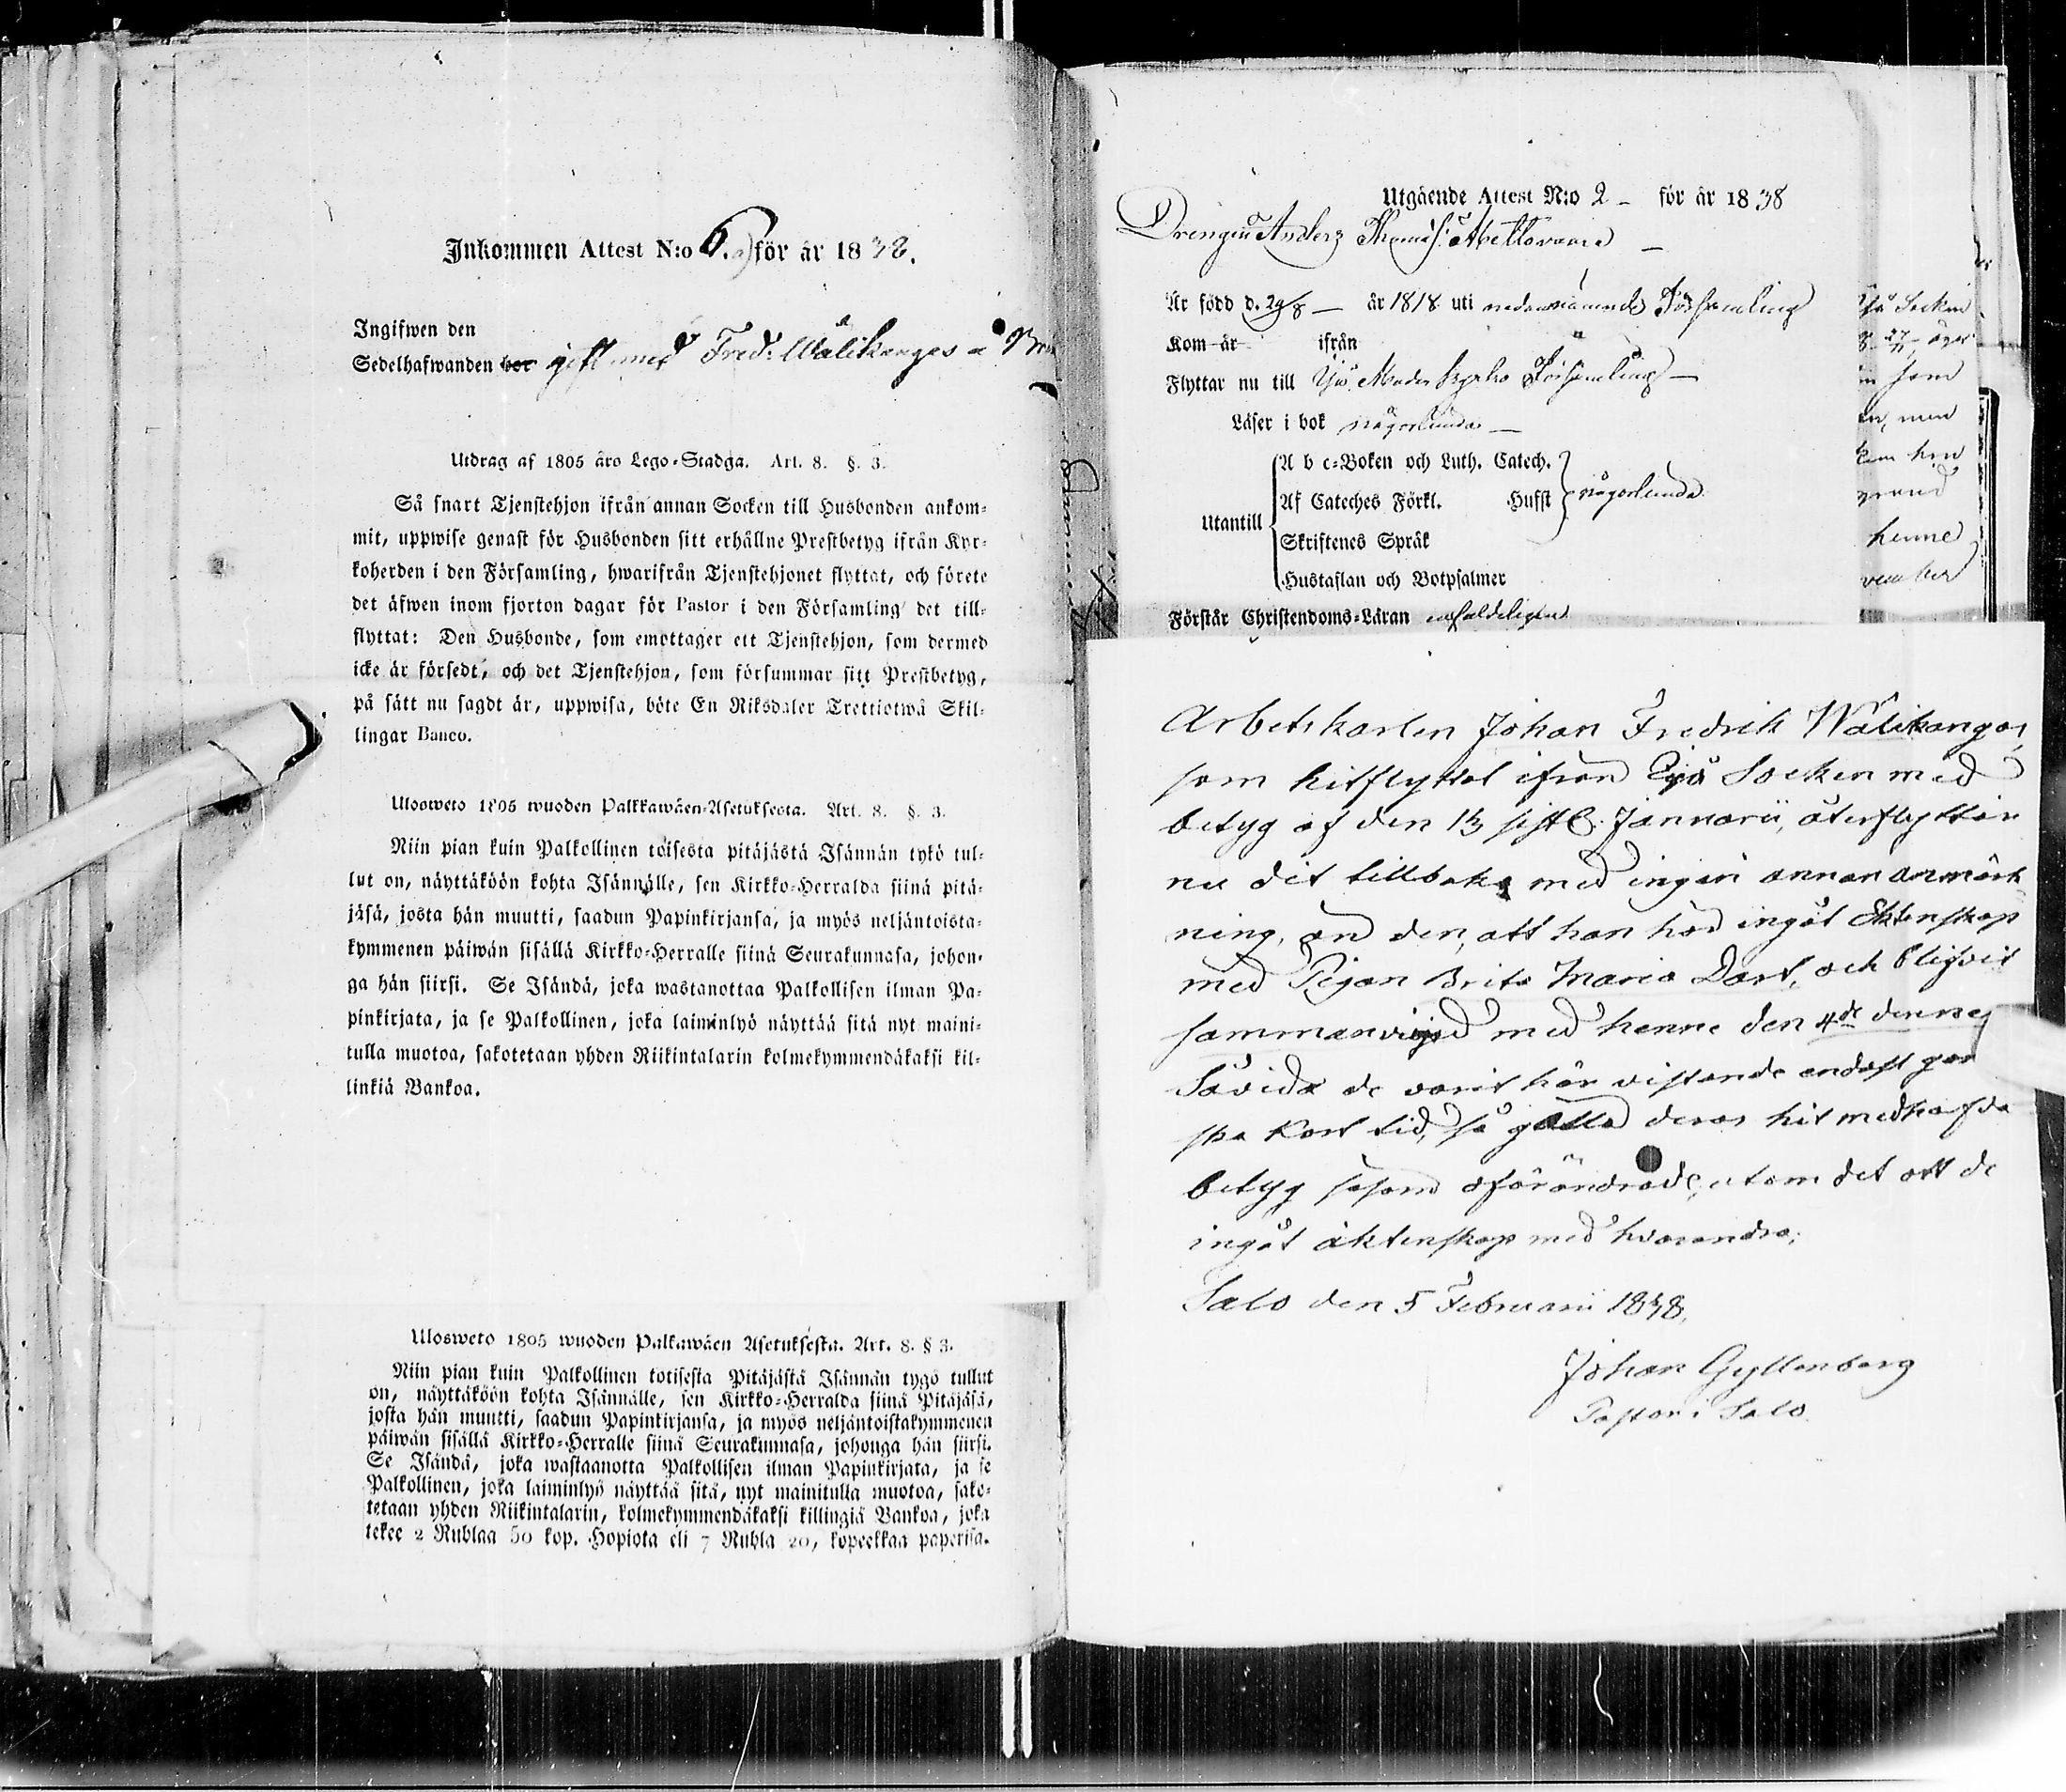 Inkommen Attest N:o 6. a) för år 1838.
Ingifwen den
Sedelhafwanden bor gift med Fred: Wälikangas å
Utdrag af 1805 års Lego-Stadga. Art. 8. §. 3.
Så snart Tjenstehjon ifrån annan Socken till Husbonden ankom-
mit, uppwise genast för Husbonden sitt erhållne Prestbetyg ifrån Kyr-
koherden i den Församling, hwarifrån Tjenstehjonet flyttat, och förete
det äfwen inom fjorton dagar för Pastor i den Församling det till-
flyttat: Den Husbonde, som emottager ett Tjenstehjon, som dermed
icke är försedt, och det Tjenstehjon, som försummar sitt Prestbetyg,
på sätt nu sagdt är, uppwisa, böte En Riksdaler Trettiotwå Skil-
lingar Banco.
Ulosweto 1805 wuoden Palkkawäen-Asetuksesta. Art. 8. §. 3.
Niin pian kuin Palkollinen toisesta pitäjästä Isännän tykö tul-
lut on, näyttäköön kohta Isännälle, sen Kirkko-Herralda siinä pitä-
jäsä, josta hän muutti, saadun Papinkirjansa, ja myös neljäntoista-
kymmenen päiwän sisällä Kirkko-Herralle siinä Seurakunnasa, johon-
ga hän siirsi. Se Isändä, joka wastanottaa Palkollisen ilman Pa-
pinkirjata, ja se Palkollinen, joka laiminlyö näyttää sitä nyt maini-
tulla muotoa, sakotetaan yhden Riikintalarin kolmekymmendäkaksi kil-
linkiä Bankoa.
Ulosweto 1805 wuoden Palkawäen Asetuksesta. Art. 8. § 3.
Niin pian kuin Palkollinen totisesta Pitäjästä Isännän tygö tullut
on, näyttäköön kohta Isännälle, sen Kirkko-Herralda siinä Pitäjäsä,
josta hän muutti, saadun Papinkirjansa, ja myös neljäntoistakymmenen
päiwän sisällä Kirkko-Herralle siinä Seurakunnasa, johonga hän siirsi.
Se Isändä, joka wastaanotta Palkollisen ilman Papinkirjata, ja se
Palkollinen, joka laiminlyö näyttää sitä, nyt mainitulla muotoa, sako-
tetaan yhden Riikintalarin, kolmekymmendäkaksi killingiä Bankoa, joka
tekee 2 Rublaa 50 kop. Hopiota eli 7 Rubla 20, kopeekkaa paperisa.
Utgående Attest N:o 2 - för år 1838
Drengen Anders Thomas:
Är född d. 29/8 - år 1818 uti nedannämnde Församling
Kom år ifrån
Flyttar nu till Ijo Moderkyrko Församling -
Läser i bok någorlunda -
Utantill
A b c-Boken och Luth. Catech.
Af Cateches Förkl. Hufst någorlunda
Skriftenes Språk
Hustaflan och Botpsalmer
Förstår Christendoms-Läran enfaldeligen
Socken
som
men
henne
vember
Arbetskarlen Johan Fredrik Wälikangas,
som hitflyttat ifrån Ijo Socken med
betyg af den 13 sistl. Januarii, återflyttar
nu dit tillbaka med ingen annan anmärk
ning, än den, att han har ingåt Ektenskap
med Pigan Brita Maria Dast, och blifvit
sammanvigd med henne den 4de dennes
Såvida de varit här vistande endast gan
ska kort tid, så gälla deras hit medhafda
betyg såsom oförändrade, utom det att de
ingåt äktenskap med hvarandra;
Salo den 5 Februarii 1838,
Johan Gyllenberg
Pastor i Salo.